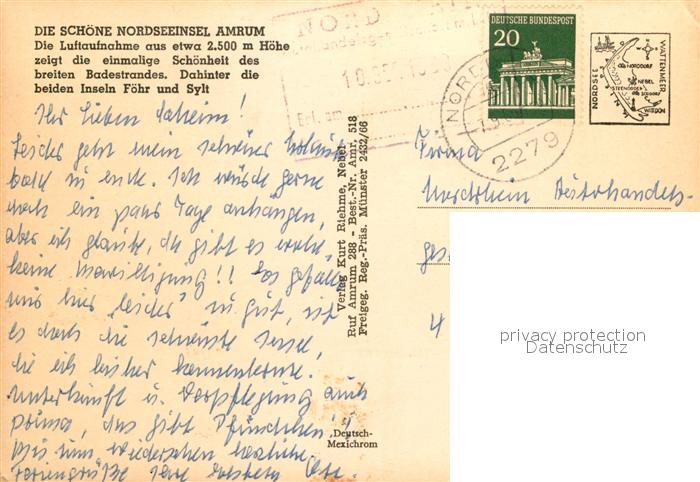 DIE SCHÖNE NORDSEEINSEL AMRUM
Die Luftaufnahme aus etwa 2.500 m Höhe
zeigt die einmalige Schönheit des
breiten Badestrandes. Dahinter die
beiden Inseln Föhr und Sylt
Ihr lieben daheim!
Leider geht mein schöner Urlaub
bald zu ende. Ich würde gerne
noch ein paar Tage anhängen,
aber ich glaube, da gibt es
keine !! Es gefällt
uns hier "leider" zu gut, ist
es doch die schönste Insel,
die ich bisher kennenlernte.
Unterkunft u. Verpflegung auch
prima, das gibt Pfündchen!
Bis zum wiedersehen herzliche
Feriengrüße
Verlag Kurt Riehme, Nebel
Ruf Amrum 288 - Best.-Nr. Amr. 518
Freigeg. Reg.-Präs. Münster 2432/66
"Deutsch-
Mexichrom
NORD
Eing. am
DEUTSCHE BUNDESPOST
20
2279
NORDSEE
WATTENMEER
NORDDORF
NEBEL
STEENODDE
SÜDDORF
WITTDÜN
Firma
Nordrhein
4
privacy protection
Datenschutz